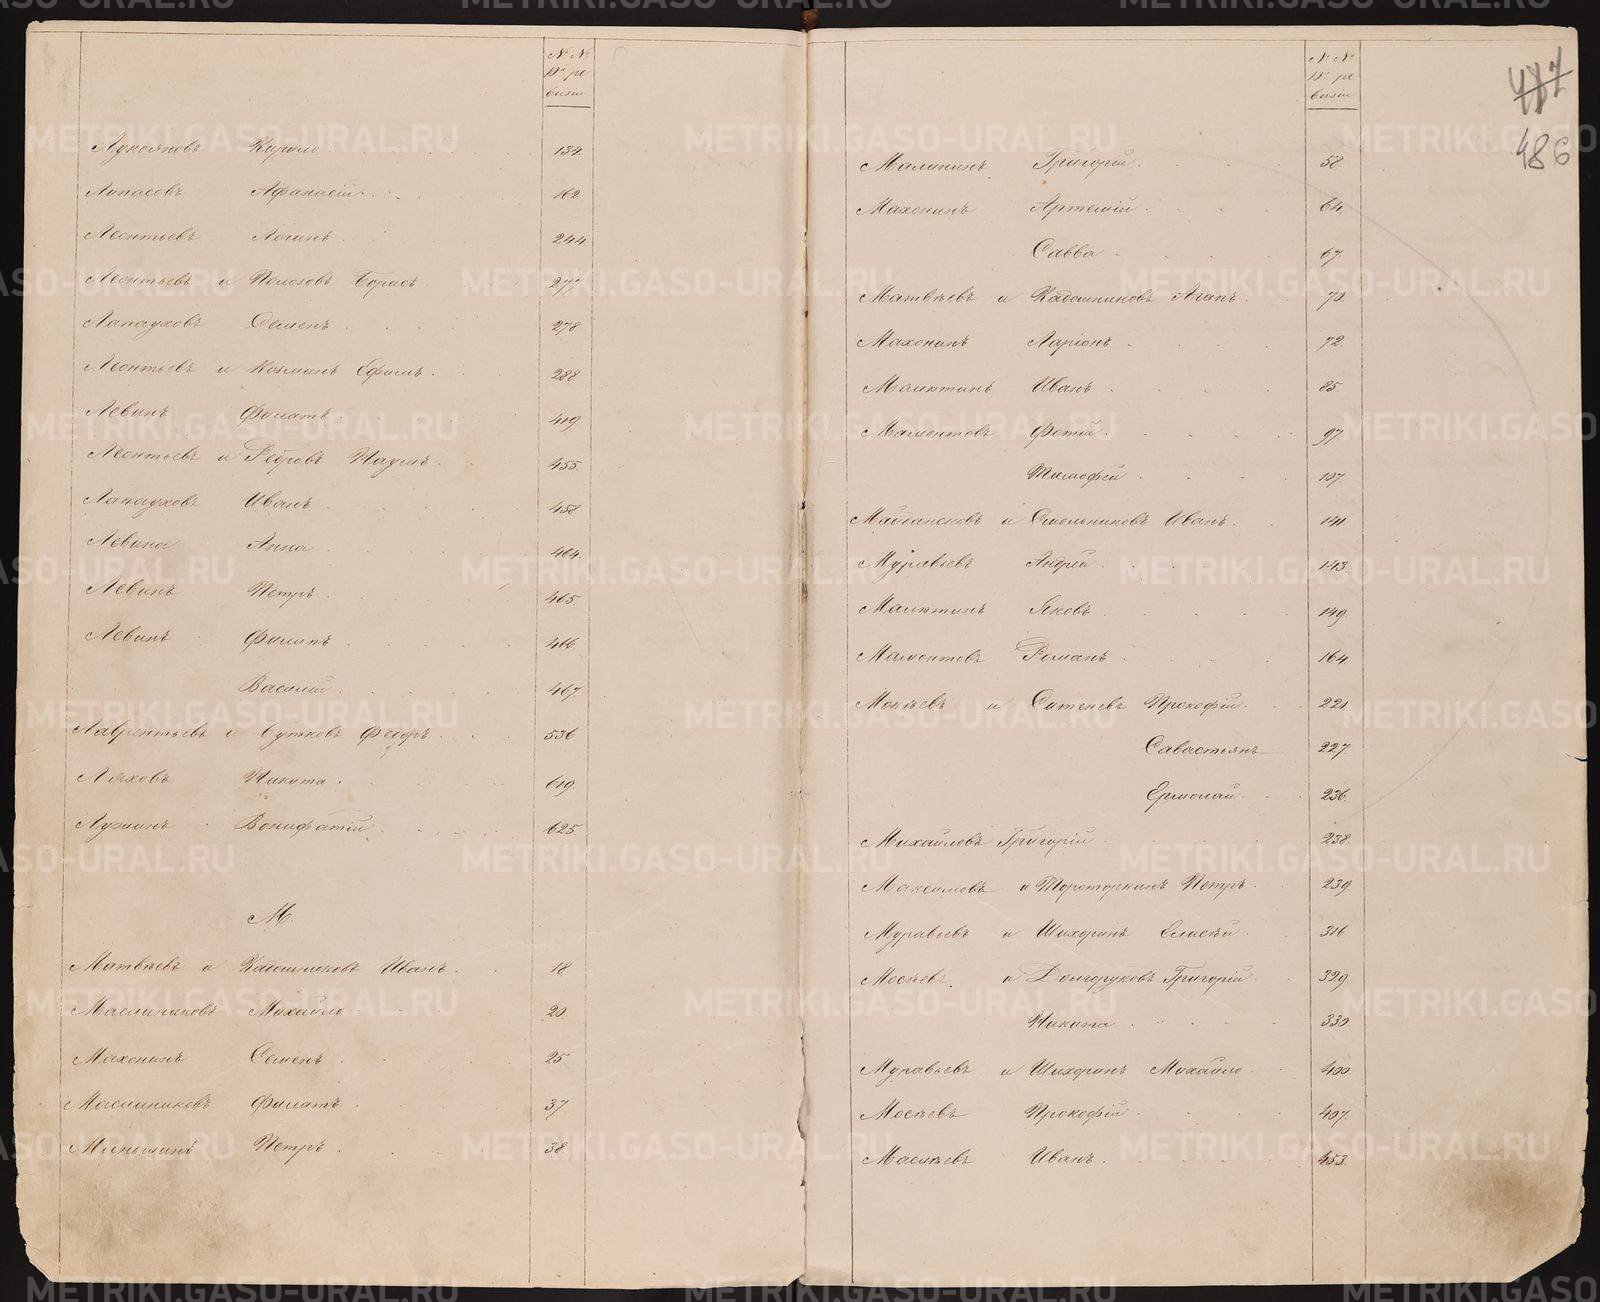 № №
10й ре
визiи
Лукояновъ Кирило 134.
Лапасовъ Афанасiй 162.
Леонтьевъ Логинъ 244.
Леонтьевъ и Полозовъ Борисъ 277.
Лапауховъ Семенъ 278
Леонтьевъ и Козминъ Ефимъ 288
Левинъ Филатъ 419
Леонтьевъ и Ребровъ Наумъ 455.
Лапауховъ Иванъ 458
Левина Анна 464.
Левинъ Петръ 465
Левинъ Филипъ 466
Василiй 467.
Лаврентьевъ и Сутковъ Федоръ 536
Ляховъ Никита 619.
Лузинъ Вонифатiй 625.
М.
Матвѣевъ и Кадошниковъ Иванъ 18
Масленниковъ Михайло 20
Махонинъ Семенъ 25
Масленниковъ Филатъ 37
Меньшинъ Петръ 38
№ №
10й ре
визiи
477
486
Малининъ Григорiй 58
Махонинъ Артемiй 64.
Савва 67.
Матвѣевъ и Кадошниковъ Агапъ 70.
Махонинъ Ларiонъ 72
Малютинъ Иванъ 85.
Мамонтовъ Фотiй 97.
Тимофей 107.
Майдансковъ и Смольниковъ Иванъ 141
Муравьевъ Андрей 143
Малютинъ Яковъ 149.
Мамонтовъ Романъ 164.
Мосѣевъ и Ситеневъ Прокофiй 221
Савастьянъ 227.
Ермолай 236.
Михайловъ Григорiй 238.
Максимовъ и Тороторкинъ Петръ 239.
Муравьевъ и Шихоринъ Елисѣй 316
Мосѣевъ и Долгоруковъ Григорiй 329
Никита 330
Муравьевъ и Шихоринъ Михайло 400
Мосѣевъ Прокофiй 407.
Мосѣевъ Иванъ 453.
METRIKI.GASO-URAL.RU